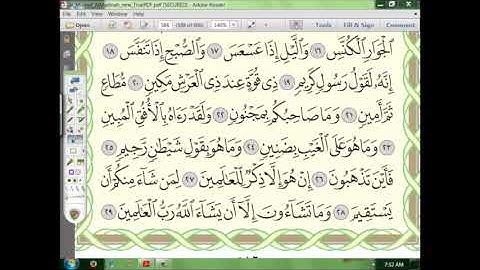 Mushaf_AlMadinah_new_TruePDF.pdf [SECURED] - Adobe Reader
Tools Fill & Sign Comment
ٱلْجَوَارِ ٱلْكُنَّسِ ١٦ وَٱلَّيْلِ إِذَا عَسْعَسَ ١٧ وَٱلصُّبْحِ إِذَا تَنَفَّسَ ١٨
إِنَّهُۥ لَقَوْلُ رَسُولٍ كَرِيمٍ ١٩ ذِى قُوَّةٍ عِندَ ذِى ٱلْعَرْشِ مَكِينٍ ٢٠ مُّطَاعٍ
ثَمَّ أَمِينٍ ٢١ وَمَا صَاحِبُكُم بِمَجْنُونٍ ٢٢ وَلَقَدْ رَءَاهُ بِٱلْأُفُقِ ٱلْمُبِينِ
٢٣ وَمَا هُوَ عَلَى ٱلْغَيْبِ بِضَنِينٍ ٢٤ وَمَا هُوَ بِقَوْلِ شَيْطَٰنٍ رَّجِيمٍ ٢٥
فَأَيْنَ تَذْهَبُونَ ٢٦ إِنْ هُوَ إِلَّا ذِكْرٌ لِّلْعَٰلَمِينَ ٢٧ لِمَن شَآءَ مِنكُمْ أَن
يَسْتَقِيمَ ٢٨ وَمَا تَشَآءُونَ إِلَّآ أَن يَشَآءَ ٱللَّهُ رَبُّ ٱلْعَٰلَمِينَ ٢٩
7:52 AM